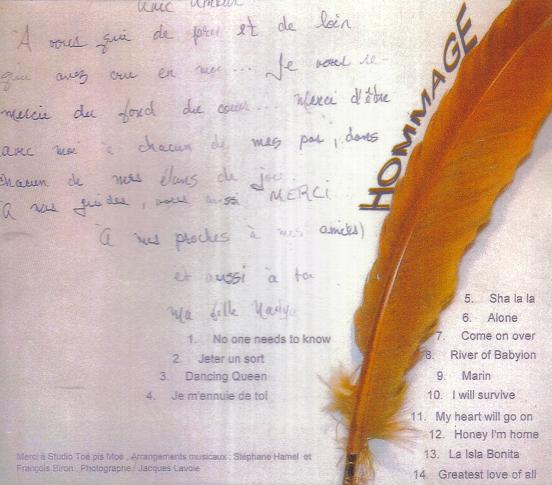 avec amour
A vous qui de près et de loin
qui avez cru en moi... Je vous re-
mercie du fond du coeur... Merci d'être
avec moi à chacun de mes pas, dans
chacun de mes élans de joie.
A nos guides, vous aussi MERCI
A mes proches à mes amies)
et aussi à toi
Ma fille Nadya
HOMMAGE
1. No one needs to know
2 Jeter un sort
3. Dancing Queen
4. Je m'ennuie de toi
5. Sha la la
6. Alone
7. Come on over
8. River of Babylon
9. Marin
10. I will survive
11. My heart will go on
12. Honey I'm home
13. La Isla Bonita
14. Greatest love of all
Merci à Studio Toé pis Moé , Arrangements musicaux : Stéphane Hamel et
François Biron , Photographe : Jacques Lavoie